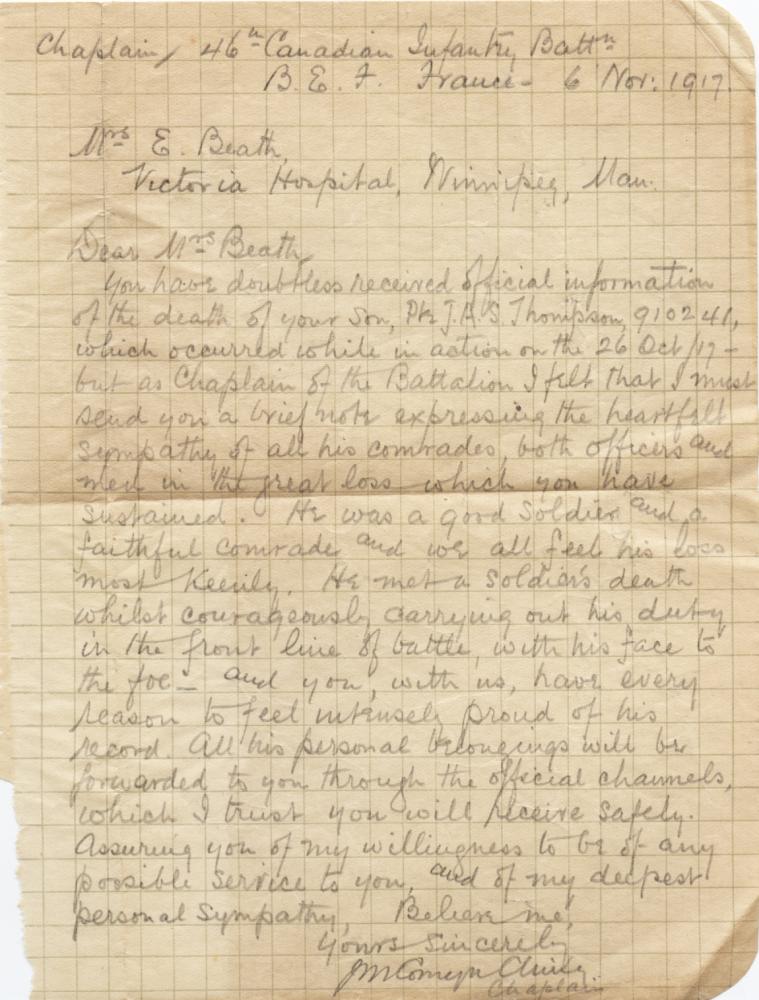 Chaplain, 46th Canadian Infantry Battn
B.E.F. France - 6 Nov: 1917.
Mrs E. Beath,
Victoria Hospital, Winnipeg, Man.
Dear Mrs Beath,
You have doubtless received official information
of the death of your son, Pte J.A.S. Thompson, 910241,
which occurred while in action on the 26 Oct/17 -
but as Chaplain of the Battalion I felt that I must
send you a brief note expressing the heartfelt
sympathy of all his comrades, both officers and
men in the great loss which you have
sustained. He was a good soldier and a
faithful comrade and we all feel his loss
most keenly. He met a soldier's death
whilst courageously carrying out his duty
in the front line of battle, with his face to
the foe - and you, with us, have every
reason to feel intensely proud of his
record. All his personal belongings will be
forwarded to you through the official channels,
which I trust you will receive safely.
Assuring you of my willingness to be of any
possible service to you, and of my deepest
personal sympathy, Believe me,
Yours sincerely
Chaplain